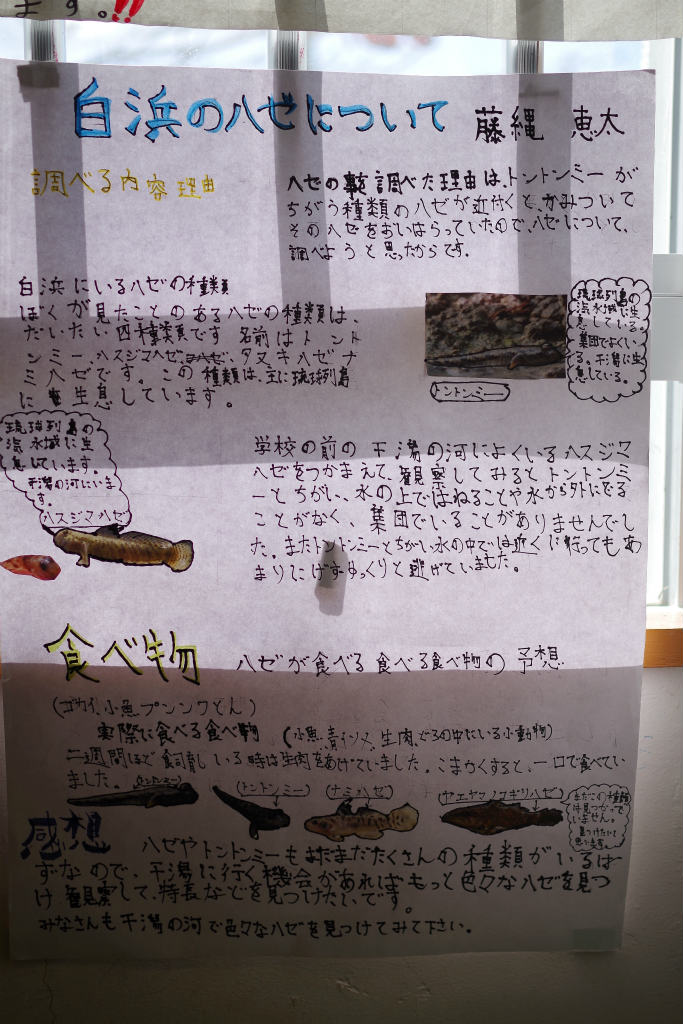 ます。!!
白浜のハゼについて 藤縄 恵太
調べる内容 理由
ハゼの事を調べた理由は、トントンミーが
ちがう種類のハゼが近付くと、かみついて
そのハゼをおいはらっていたので、ハゼについて、
調べようと思ったからです。
白浜にいるハゼの種類
ぼくが見たことのあるハゼの種類は、
だいたい四種類です 名前はトント
ンミー、ハスジマハゼ、タヌキハゼ、ナ
ミハゼです。この種類は、主に琉球列島
に生息しています。
琉球列島の
浅水域に生
息している。
集団でよくい
る。干潟に生
息している。
トントンミー
琉球列島の
浅水域に生
息しています。
干潟の河にいま
す。
ハスジマハゼ
学校の前の干潟の河によくいるハスジマ
ハゼをつかまえて、観察してみるとトントンミ
ーとちがい、水の上ではねることや水から外にでる
ことがなく、集団でいることがありませんでし
た。またトントンミーとちがい水の中では近くに行ってもあ
まりにげずゆっくりと逃げていました。
食べ物 ハゼが食べる食べる食べ物の予想
(ゴカイ、小魚プンンクとん)
実際に食べる食べ物 (小魚、青イソメ、生肉、どろの中にいる小動物)
二週間ほど飼育している時は生肉をあげていました。こまかくすると、一口で食べてい
ました。
(トントンミー)
(トントンミー)
(ナミハゼ)
(ヤエヤマノコギリハゼ)
まだこの種類
は見つかって
いません。
見つけたいと
思います。
感想
ハゼやトントンミーもまだまだたくさんの種類がいるは
ずなので、干潟に行く機会があればもっと色々なハゼを見つ
け観察して、特長などを見つけたいです。
みなさんも干潟の河で色々なハゼを見つけてみて下さい。